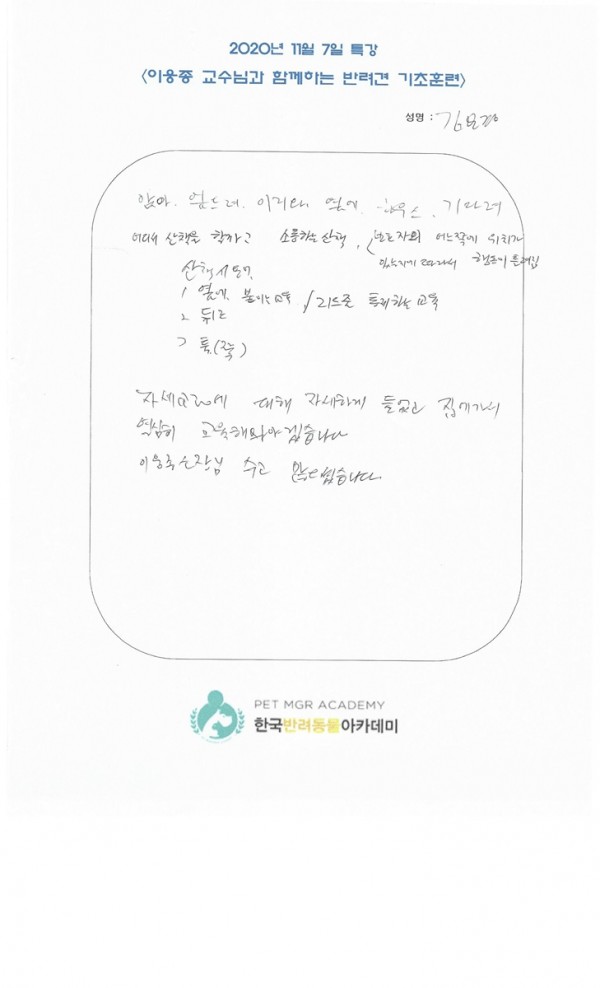 2020년 11월 7일 특강
<이웅종 교수님과 함께하는 반려견 기초훈련>
성명 : 김
앉아. 엎드려. 이리와 옆에. 하우스. 기다려
산책을 할까? 소통하는 산책, 보호자의 어느쪽에 위치가
있는지에 따라서 행동이 틀려짐
산책시
1. 옆에 붙이는 교육 / 리드줄 통제하는 교육
2. 뒤로
3
대해 자세하게 들었고 집에가서
열심히 교육해봐야겠습니다
이웅종 수고 많으셨습니다.
PET MGR ACADEMY
한국반려동물아카데미